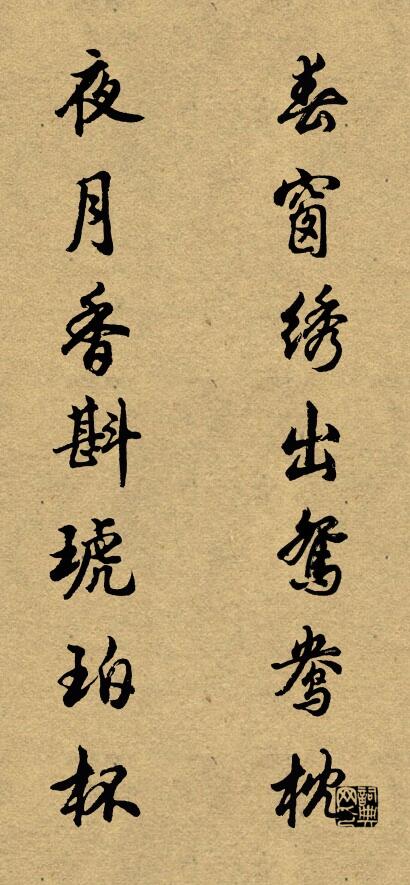 春窗绣出鸳鸯枕
夜月香斟琥珀杯
詞典网